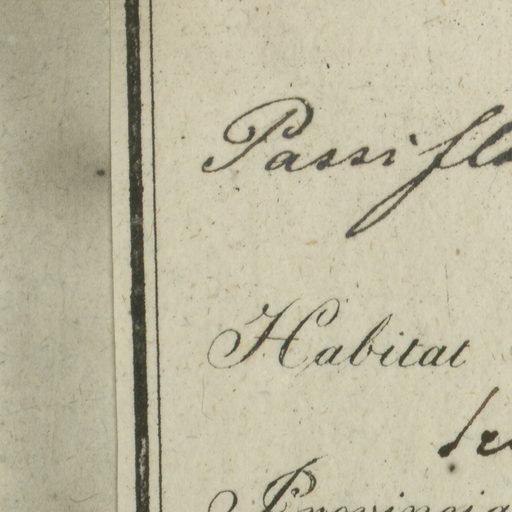 Passiflo
Habitat
Provincia